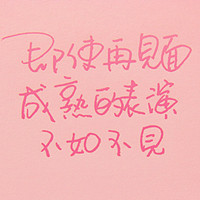 即使再見面
成熟的表演
不如不見